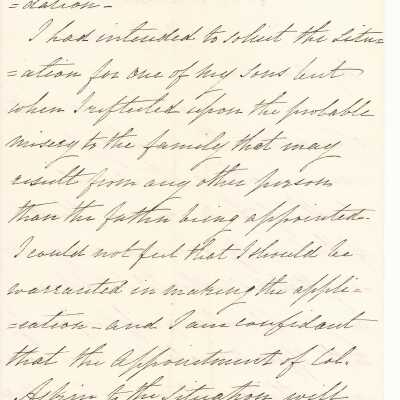 =dation -
I had intended to solicit the Situ=
=ation for one of my sons but
when I reflected upon the probable
misery to the family that may
result from any other person
than the father being appointed-
I could not feel that I should be
warranted in making the appli-
=cation - and I am confident
that the Appointment of Col.
Askin to the Situation will